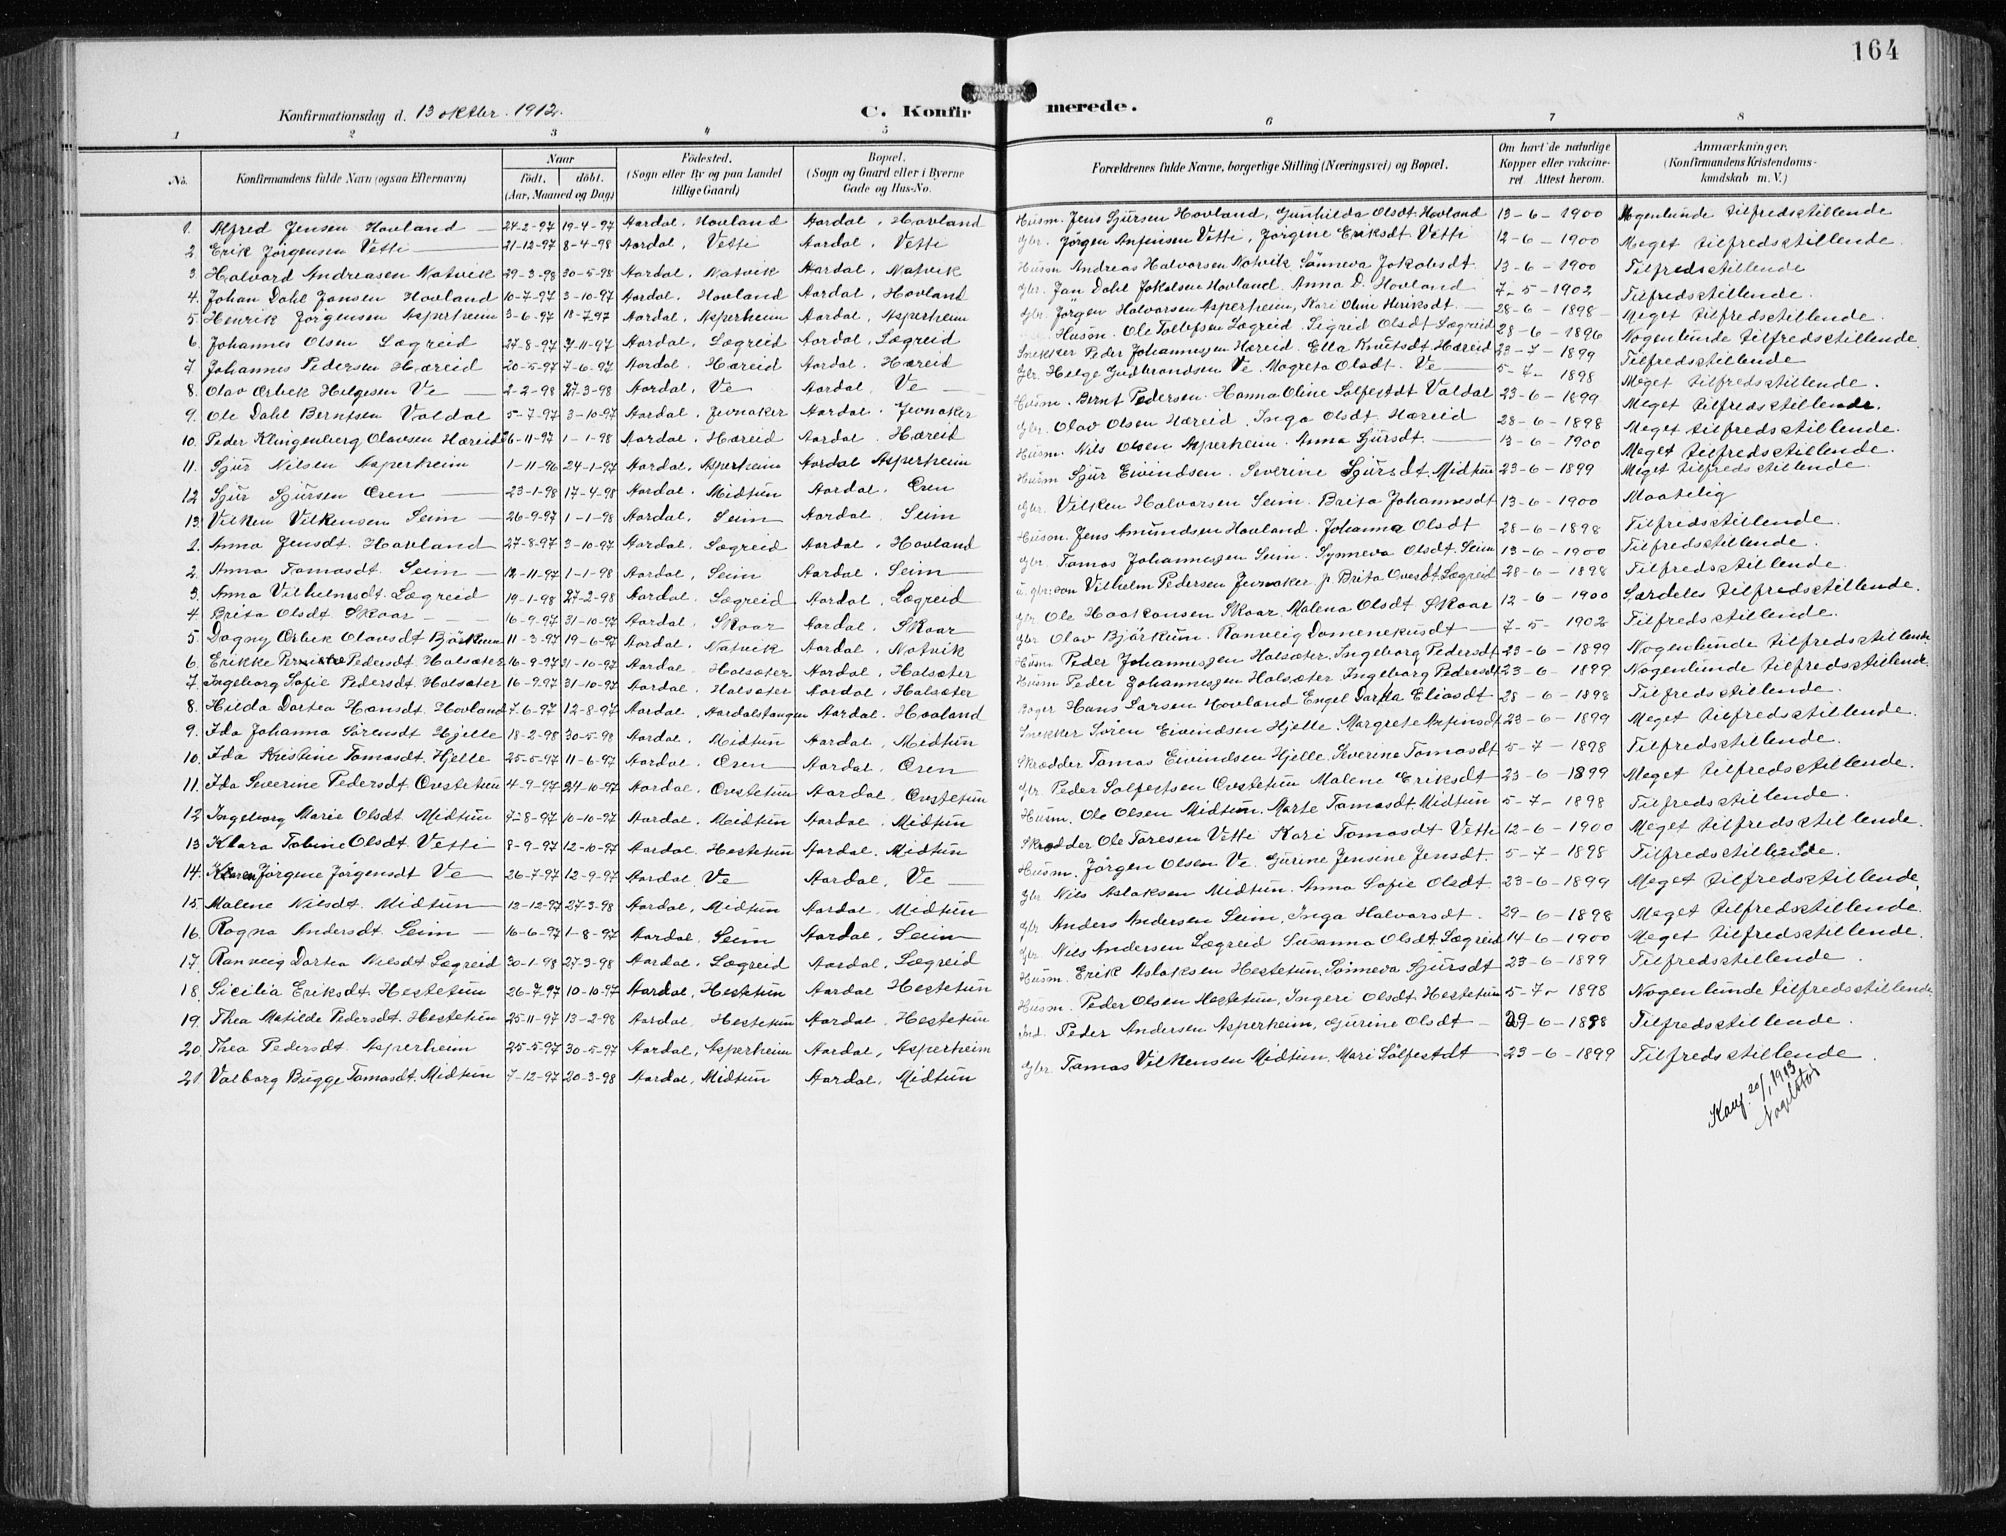 164
Konfirmationsdag d. 13 oktbr. 1912. C. Konfirmerede.
1 2 3 4 5 6 7 8
No. Konfirmandens fulde Navn (ogsaa Efternavn) Naar Født. døbt. (Aar, Maaned og Dag) Fødested. (Sogn eller By og paa Landet tillige Gaard) Bopæl. (Sogn og Gaard eller i Byerne Gade og Hus-No. Forældrenes fulde Navne, borgerlige Stilling (Næringsvei) og Bopæl. Om havt de naturlige Kopper eller vakcineret Attest herom. Anmærkninger. (Konfirmandens Kristendomskundskab m. V.)
1. Alfred Jensen Hovland 24-2-97 19-4-97 Aardal, Hovland Aardal, Hovland Husm. Jens Sjursen Hovland, Gunhilda Olsdt. Hovland 13-6-1900 Nogenlunde tilfredsstillende
2. Erik Jørgensen Vetti 21-12-97 8-4-98 Aardal, Vetti Aardal, Vetti Gbr. Jørgen Anfinsen Vetti, Jørgine Eriksdt. Vetti 12-6-1900 Meget tilfredsstillende.
3. Halvard Andreasen Natvik 29-3-98 30-5-98 Aardal, Natvik Aardal, Natvik Husm. Andreas Halvorsen Natvik Sønneva Jakobsdt. 13-6-1900 Tilfredsstillende
4. Johan Dahl Jansen Hovland 10-7-97 3-10-97 Aardal, Hovland Aardal, Hovland Gbr. Jan Dahl Jokobsen Hovland. Anna D. Hovland 7-5-1902 Tilfredsstillende.
5. Henrik Jørgensen Asperheim 3-6-97 18-7-97 Aardal, Asperheim Aardal, Asperheim Gbr. Jørgen Halvorsen Asperheim, Kari Oline Henriksdt. 28-6-1898 Meget tilfredsstillende.
6. Johannes Olsen Lægreid 27-8-97 7-11-97 Aardal, Lægreid Aardal, Lægreid Husm. Ole Tollefsen Lægreid. Sigrid Olsdt Lægreid 28-6-1896 Nogenlunde tilfredsstillende.
7. Johannes Pedersen Hæreid 20-5-97 7-6-97 Aardal, Hæreid Aardal, Hæreid Snekker Peder Johannessen Hæreid. Ella Knutsdt Hæreid 23-7-1899 Tilfredsstillende
8. Olav Ørbek Helgesen Ve 2-2-98 27-3-98 Aardal, Ve Aardal Ve Gbr. Helge Gudbrandsen Ve. Magreta Olsdt. Ve 5-7-1898 Meget tilfredsstillende.
9. Ole Dahl Berntsen Valdal 5-7-97 3-10-97 Aardal, Jevnaker Aardal, Jevnaker Husm. Bernt Pedersen. Hanna Oline Solfestdt Valdal 23-6-1899 Meget tilfredsstillende.
10. Peder Klingenberg Olavsen Hæreid 26-11-97 1-1-98 Aardal, Hæreid Aardal, Hæreid Gbr. Olav Olsen Hæreid. Inga Olsdt. Hæreid 28-6-1898 Meget tilfredsstillende.
11. Sjur Nilsen Asperheim 1-11-96 24-1-97 Aardal, Asperheim Aardal Asperheim Husm. Nils Olsen Asperheim. Anna Sjursdt. 13-6-1900 Meget tilfredsstillende.
12 Sjur Sjursen Øren 23-1-98 17-4-98 Aardal, Midtun Aardal, Øren Husm Sjur Eivindsen. Severine Sjursdt Midtun 23-6-1899 Meget tilfredsstillende
13. Vilken Vilkensen Seim 26-9-97 1-1-98 Aardal, Seim Aardal, Seim Gbr. Vilken Halvorsen Seim. Brita Johannesdt 13-6-1900 Maatelig
1. Anna Jensdt. Hovland 27-8-97 3-10-97 Aardal, Lægreid Aardal, Hovland Husm. Jens Amundsen Hovland. Johanna Olsdt 28-6-1898 Tilfredsstillende.
2. Anna Tomasdt. Seim 12-11-97 1-1-98 Aardal, Seim Aardal, Seim Gbr. Tomas Johannessen Seim. Synneva Olsdt. Seim 13-6-1900 Tilfredsstillende.
3. Anna Vilhelmsdt. Lægreid 19-1-98 27-2-98 Aardal, Lægreid Aardal, Lægreid Vilhelm Pedersen Jevnaker Brita Ovesdt. Lægreid 28-6-1898 Tilfredsstillende.
4 Brita Olsdt Skaar 16-9-97 31-10-97 Aardal, Skaar Aardal, Skaar Gbr. Ole Haakonsen Skaar Malena Olsdt Skaar 12-6-1900 Særdeles tilfredsstillende.
5. Dagny Ørbek Olavsdt Bjørkum 11-3-97 19-6-97 Aardal, Natvik Aardal, Natvik Gbr Olav Bjørkum. Ranveig Domenekusdt 7-5-1902 Tilfredsstillende.
6. Erikke Pedersdt. Halsæter 16-9-97 31-10-97 Aardal, Halsæter Aardal, Halsæter Husm. Peder Johannessen Halsæter. Ingeborg Pedersdt 23-6-1899 Nogenlunde tilfredsstillende
7. Ingeborg Sofie Pedersdt. Halsæter 16-9-97 31-10-97 Aardal, Halsæter Aardal, Halsæter Husm. Peder Johannessen Halsæter Ingeborg Pedersdt 23-6-1899 Nogenlunde tilfredsstillende.
8. Hilda Dortea Hansdt. Hovland 7-6-97 12-8-97 Aardal, Aardalstangen Aardal, Hovland Hans Larsen Hovland Engel Dortea Eliasdt 28-6-1898 Tilfredsstillende.
9. Ida Johanna Sørensdt Hjelle 18-2-98 30-5-98 Aardal, Midtun Aardal, Midtun Snekker Søren Eivindsen Hjelle. Margrete Anfinsdt 23-6-1899 Meget tilfredsstillende.
10. Ida Kristine Tomasdt. Hjelle 25-5-97 11-6-97 Aardal, Øren Aardal, Øren Skrædder Tomas Eivindsen Hjelle. Severine Tomasdt 5-7-1898 Tilfredsstillende.
11. Ida Severine Pedersdt Ovstetun 4-9-97 24-10-97 Aardal, Ovstetun Aardal, Ovstetun Gbr. Peder Solfestsen Ovstetun Malene Eriksdt 23-6-1899 Meget tilfredsstillende.
12 Ingeborg Marie Olsdt. Midtun 9-8-97 10-10-97 Aardal, Midtun Aardal, Midtun Husm. Ole Olsen Midtun. Marte Tomasdt. Midtun 5-7-1898 Tilfredsstillende.
13 Klara Tobine Olsdt. Vetti 8-9-97 12-10-97 Aardal. Hestetun Aardal. Midtun Skrædder Ole Toresen Vetti Kari Tomasdt Vetti 12-6-1900 Meget tilfredsstillende.
14. Karen Jørgine Jørgensdt Ve 26-7-97 12-9-97 Aardal, Ve Aardal, Ve Husm. Jørgen Olsen Ve. Gurine Jensine Jensdt. 5-7-1898 Tilfredsstillende.
15. Malene Nilsdt. Midtun 12-12-97 27-3-98 Aardal, Midtun Aardal, Midtun Gbr Nils Aslaksen Midtun. Anna Sofie Olsdt 23-6-1899 Meget tilfredsstillende.
16. Ragna Andersdt. Seim 16-6-97 1-8-97 Aardal, Seim Aardal, Seim Gbr Anders Andersen Seim, Inga Halvorsdt. 29-6-1898 Meget tilfredsstillende.
17. Ranveig Dortea Nilsdt Lægreid 30-1-98 27-3-98 Aardal, Lægreid Aardal, Lægreid Gbr. Nils Andersen Lægreid Susanna Olsdt. Lægreid 14-6-1900 Meget tilfredsstillende.
18. Sicilia Eriksdt. Hestetun 26-7-97 10-10-97 Aardal, Hestetun Aardal Hestetun Husm. Erik Aslaksen Hestetun, Sønneva Sjursdt 23-6-1899 Tilfredsstillende.
19. Thea Matilde Pedersdt. Hestetun 25-11-97 13-2-98 Aardal, Hestetun Aardal, Hestetun Husm. Peder Olsen Hestetun, Ingeri Olsdt. Hestetun 5-7-1898 Nogenlunde tilfredsstillende
20. Thea Pedersdt. Asperheim 25-5-97 30-5-97 Aardal, Asperheim Aardal, Asperheim Ind. Peder Andersen Asperheim, Gurine Olsdt 29-6-1898 Tilfredsstillende.
21 Valborg Bugge Tomasdt. Midtun 7-12-97 20-3-98 Aardal, Midtun Aardal, Midtun Gbr. Tomas Vilkensen Midtun. Mari Solfestdt 23-6-1899 Tilfredsstillende.
20/1 1913